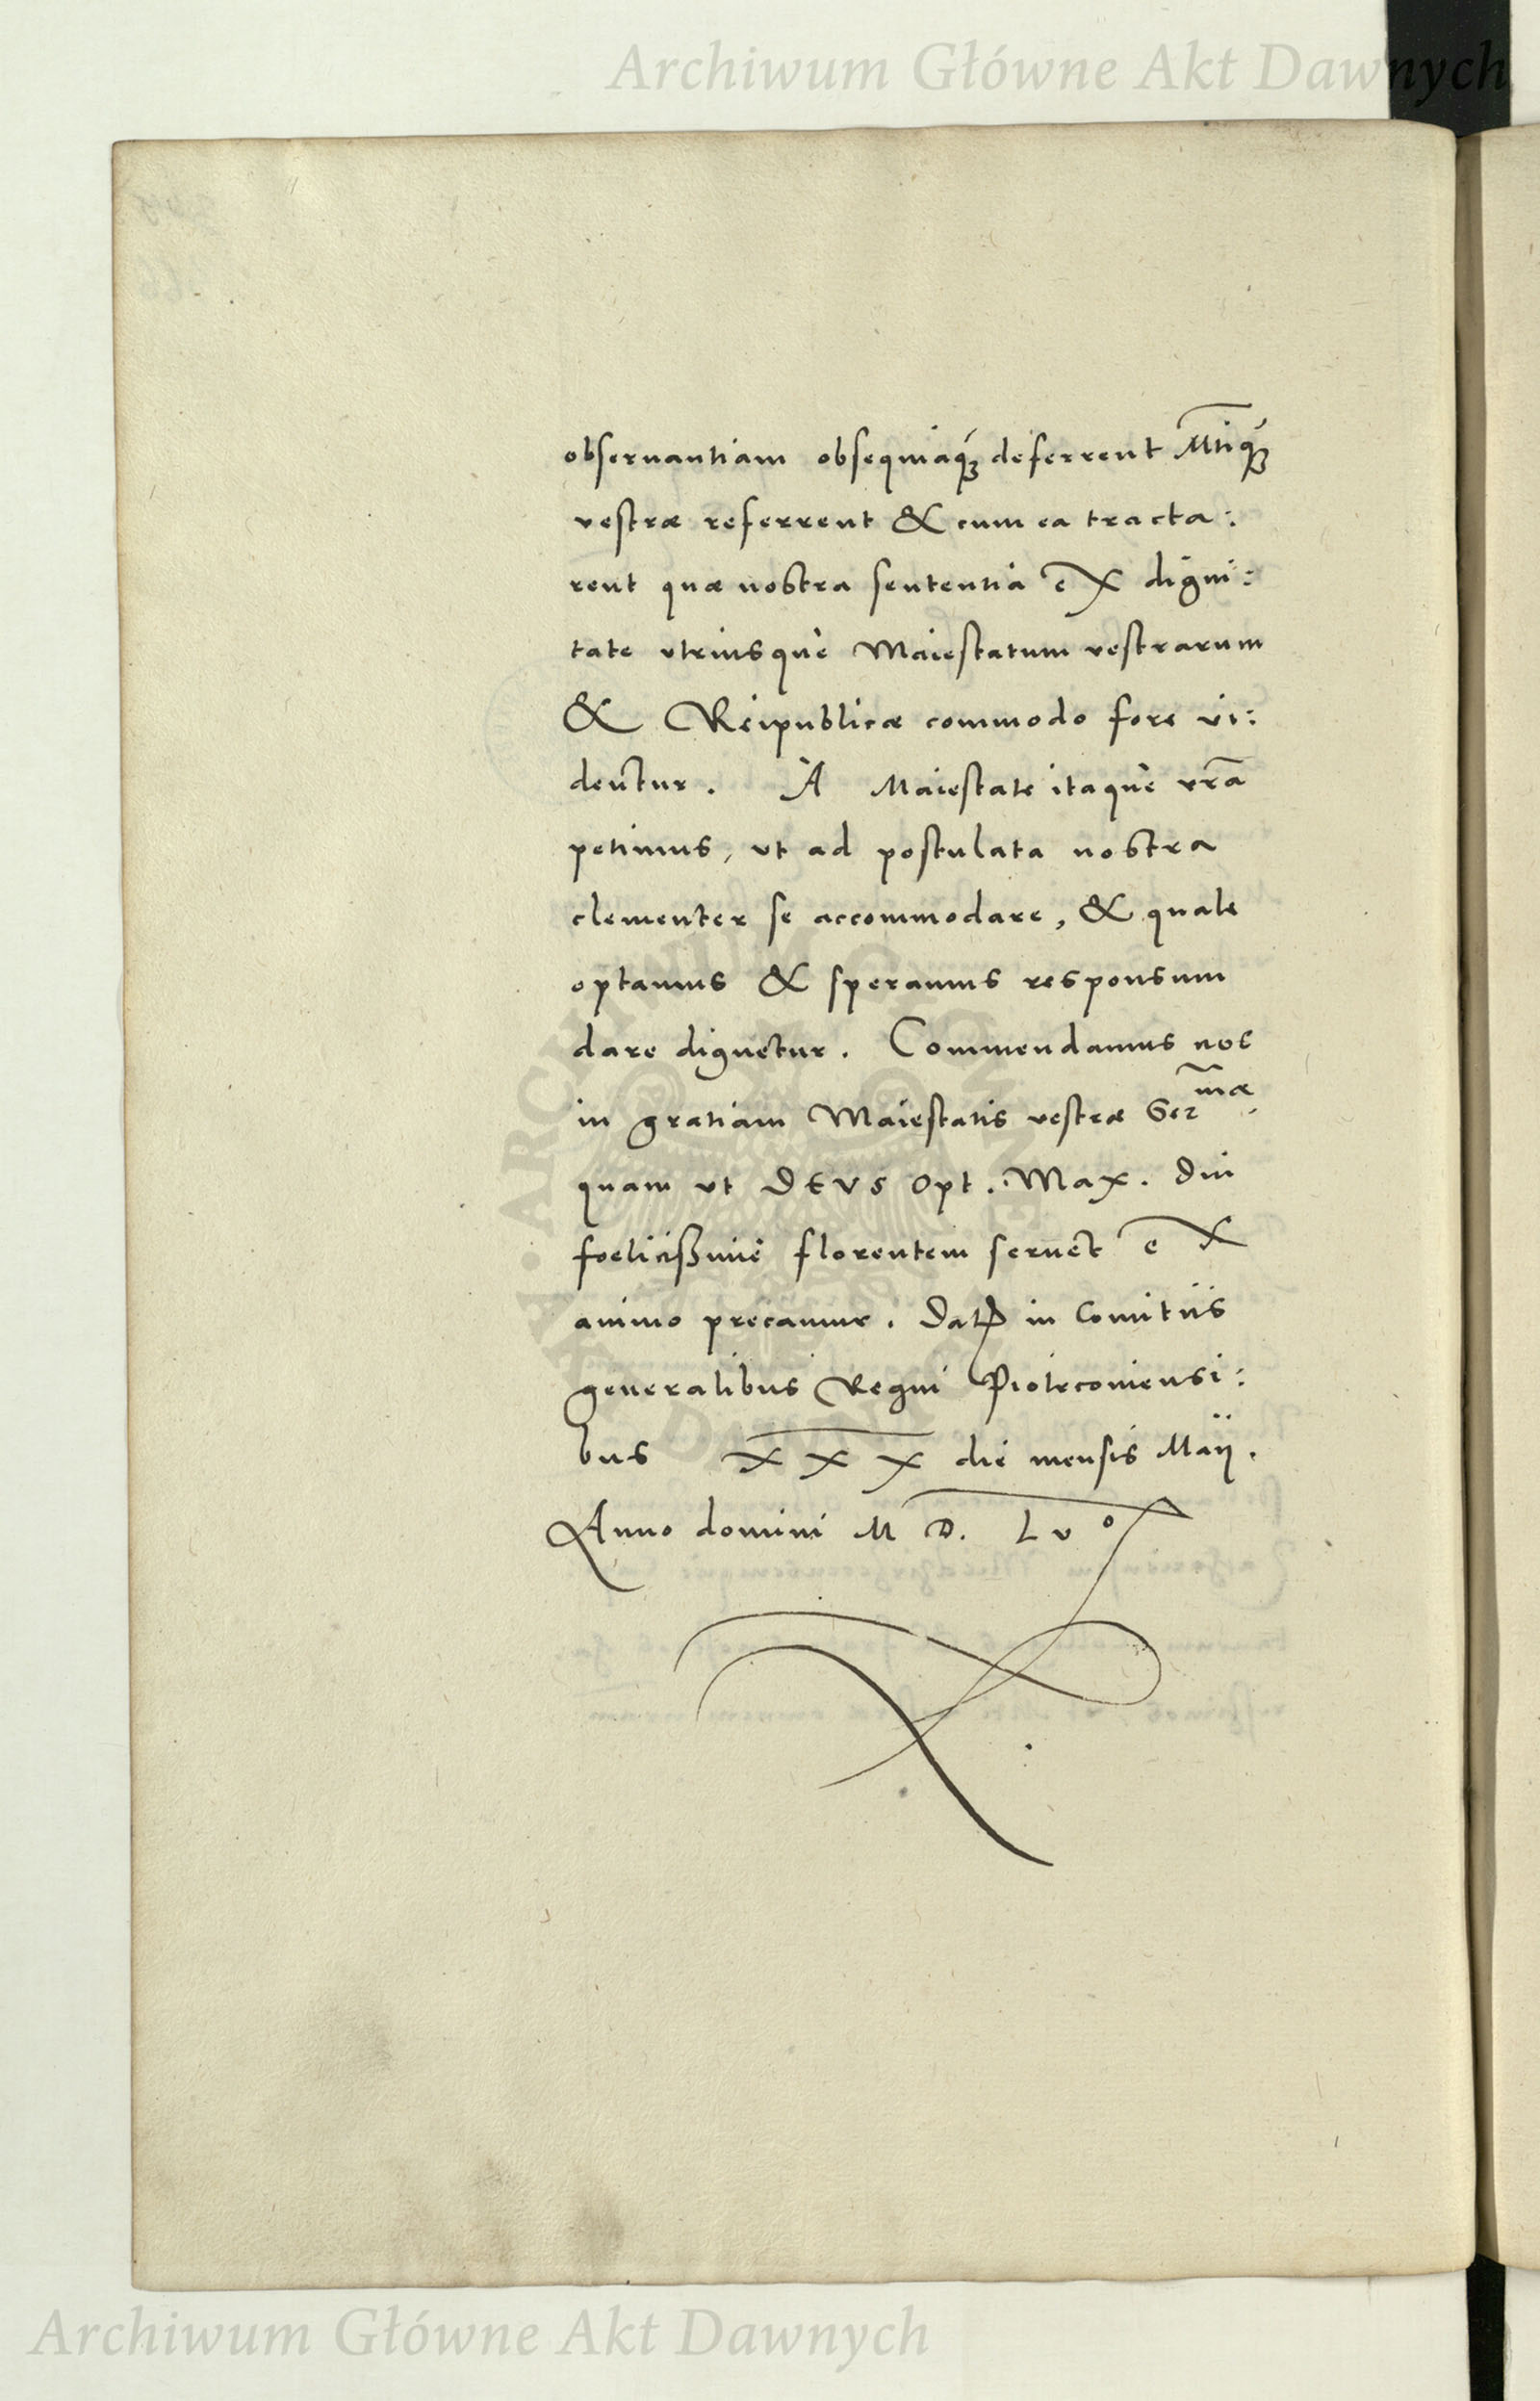 Archiwum Główne Akt Dawnych
obseruantiam obsequiaq́ꝫ deferrent M̅tiq́ꝫ
vestræ referrent & cum ea tracta:
rent quæ nostra sententia ex digni:
tate vtriusque Maiestatum vestrarum
& Reipublicæ commodo fore vi:
dentur. A Maiestate itaque vr̃a
petimus, vt ad postulata nostra
clementer se accommodare, & quale
optamus & speramus responsum
dare dignetur. Commendamus nos
in gratiam Maiestatis vestræ Ser^mæ.
quam vt DEVS Opt. Max. diu
foelicißime florentem seruet ex
animo precamur. Datꝭ in Comitiis
generalibus Regni Piotrcouiensi:
bus XXX die mensis Maij.
Anno domini M D. L v °
Archiwum Główne Akt Dawnych